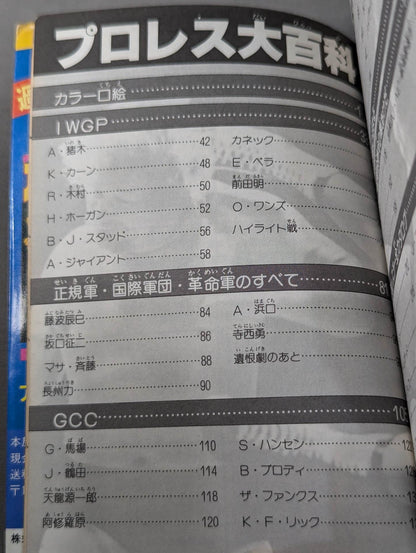 プロレス大百科
カラー口絵
IWGP
A・猪木 42
K・カーン 48
R・木村 50
H・ホーガン 52
B・J・スタッド 56
A・ジャイアント 58
カネック
E・ベラ
前田明
O・ワンズ
ハイライト戦
正規軍・国際軍団・革命軍のすべて 81
藤波辰巳 84
坂口征二 86
マサ・斉藤 88
長州力 90
A・浜口
寺西勇
遺恨劇のあと
GCC
G・馬場 110
J・鶴田 114
天龍源一郎 118
阿修羅原 120
S・ハンセン
B・ブロディ
ザ・ファンクス
K・F・リック